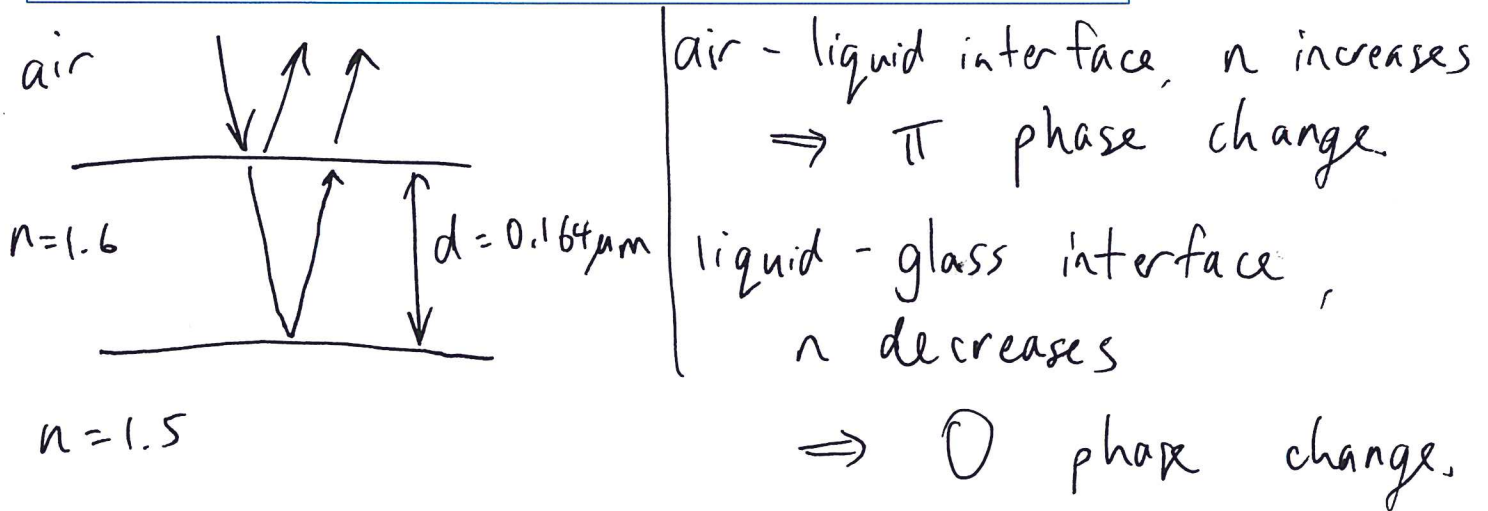 air
n=1.6
d = 0.164 μm
n = 1.5
air - liquid interface, n increases
⇒ π phase change.
liquid - glass interface,
n decreases
⇒ 0 phase change.